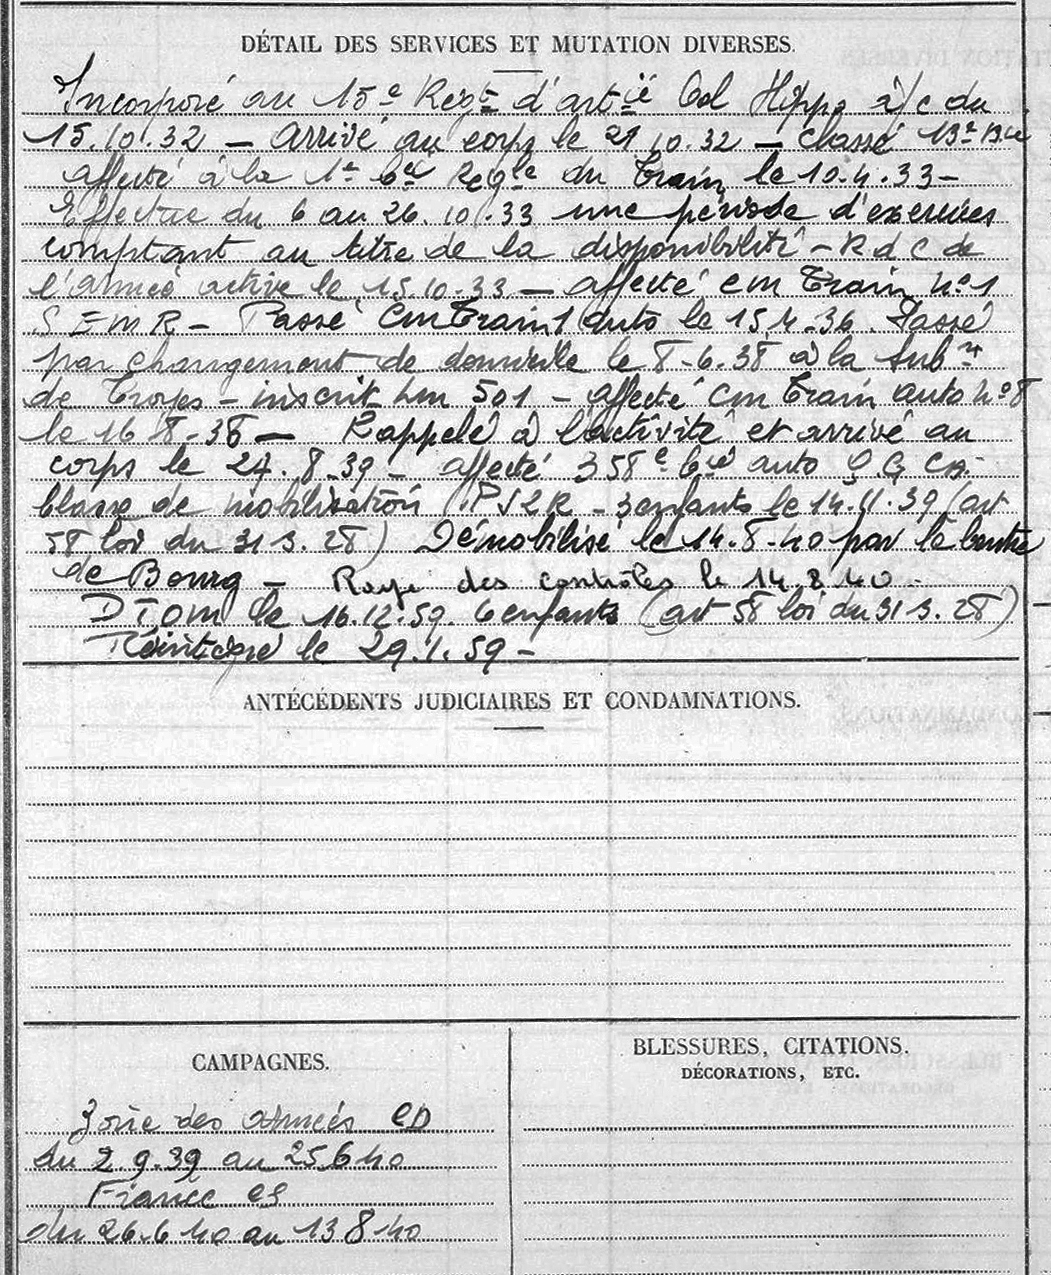 DÉTAIL DES SERVICES ET MUTATION DIVERSES.
Incorporé au 15e Regt d'artie Col Hippo à/c du
15.10.32 — arrivé au corps le 21.10.32 — classé 13e Bie
affecté à la 1e Cie Regle du Train le 10.4.33 —
Effectue du 6 au 26.10.33 une période d'exercices
comptant au titre de la disponibilité — R d C de
l'armée active le 15.10.33 — affecté CM Train n°1
S E M R — Passé CM Train 1 auto le 15.4.36. Passé
par changement de domicile le 8-6.38 à la Subon
de Troyes — inscrit Lm 501 — affecté CM Train auto n°8
le 16.8-38 — Rappelé à l'activité et arrivé au
corps le 27.8.39 — affecté 358e Cie auto Q G CA —
Classe de mobilisation 2R — 3 enfants le 14.11.39 (art
58 loi du 31 3.28) Démobilisé le 14.8.40 par le Centre
de Bourg — Rayé des contrôles le 14.8.40 —
D T O M le 16.12.59. 6 enfants (art 58 loi du 31 3.28)
Réintégré le 29.1.59 —
ANTÉCÉDENTS JUDICIAIRES ET CONDAMNATIONS.
CAMPAGNES.
Zone des armées CD
du 2.9.39 au 25.6 40
France CS
du 26.6 40 au 13 8 40
BLESSURES, CITATIONS,
DÉCORATIONS, ETC.